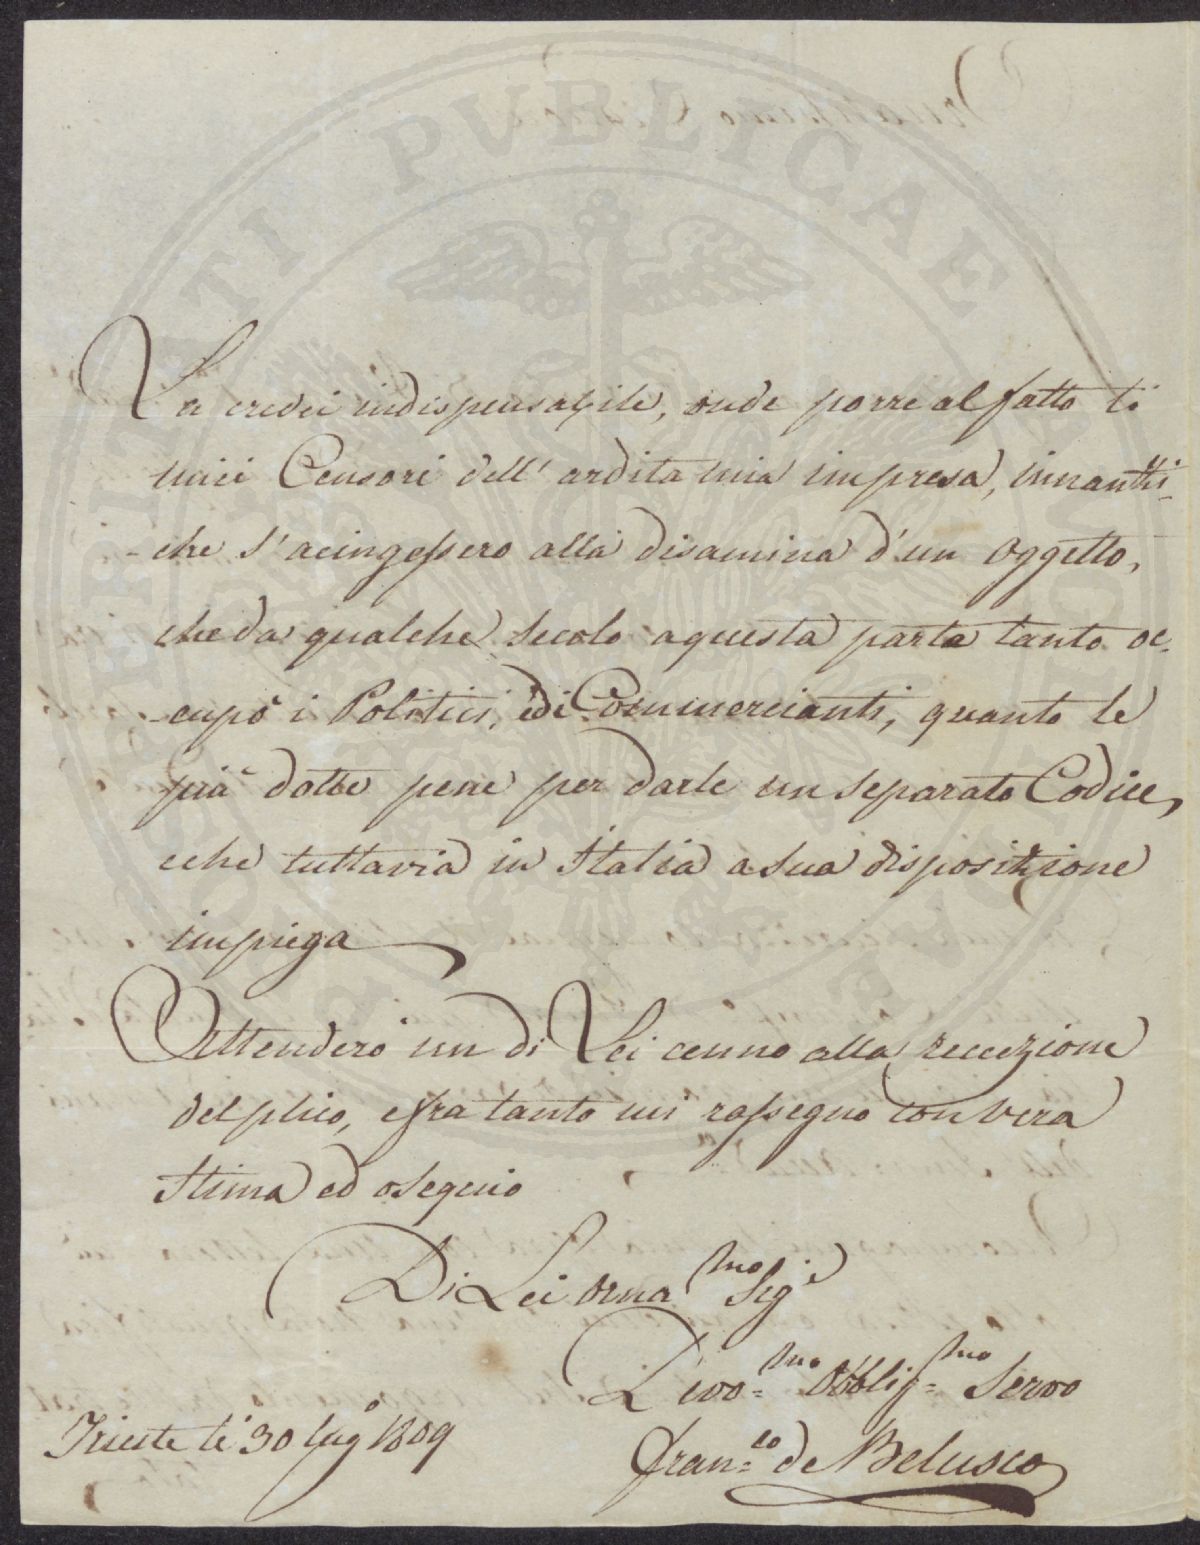 La credei indispensabile, onde porre al fatto li
miei Censori dell' ardita mia impresa, innanti
-che s' acingessero alla disamina d'un oggetto,
che da qualche secolo a questa parte tanto oc-
-cupò i Politici, e di Commercianti, quanto le
più dotte pene per darle un separato Codice,
e che tuttavia in Italia a sua disposizione
impiega
Attenderò un di Lei cenno alla recezione
del plico, e fra tanto mi rassegno con vera
stima ed osequio
Di Lei Orna.mo Sig.e
Divo.mo Obblig.mo Servo
Trieste li 30 lug.o 1809
Fran.co de Belusco
PUBLICAE